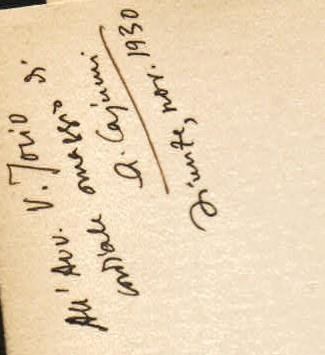 All' Avv. V. Jorio
cordiale omaggio
A. Cajumi
nov. 1930